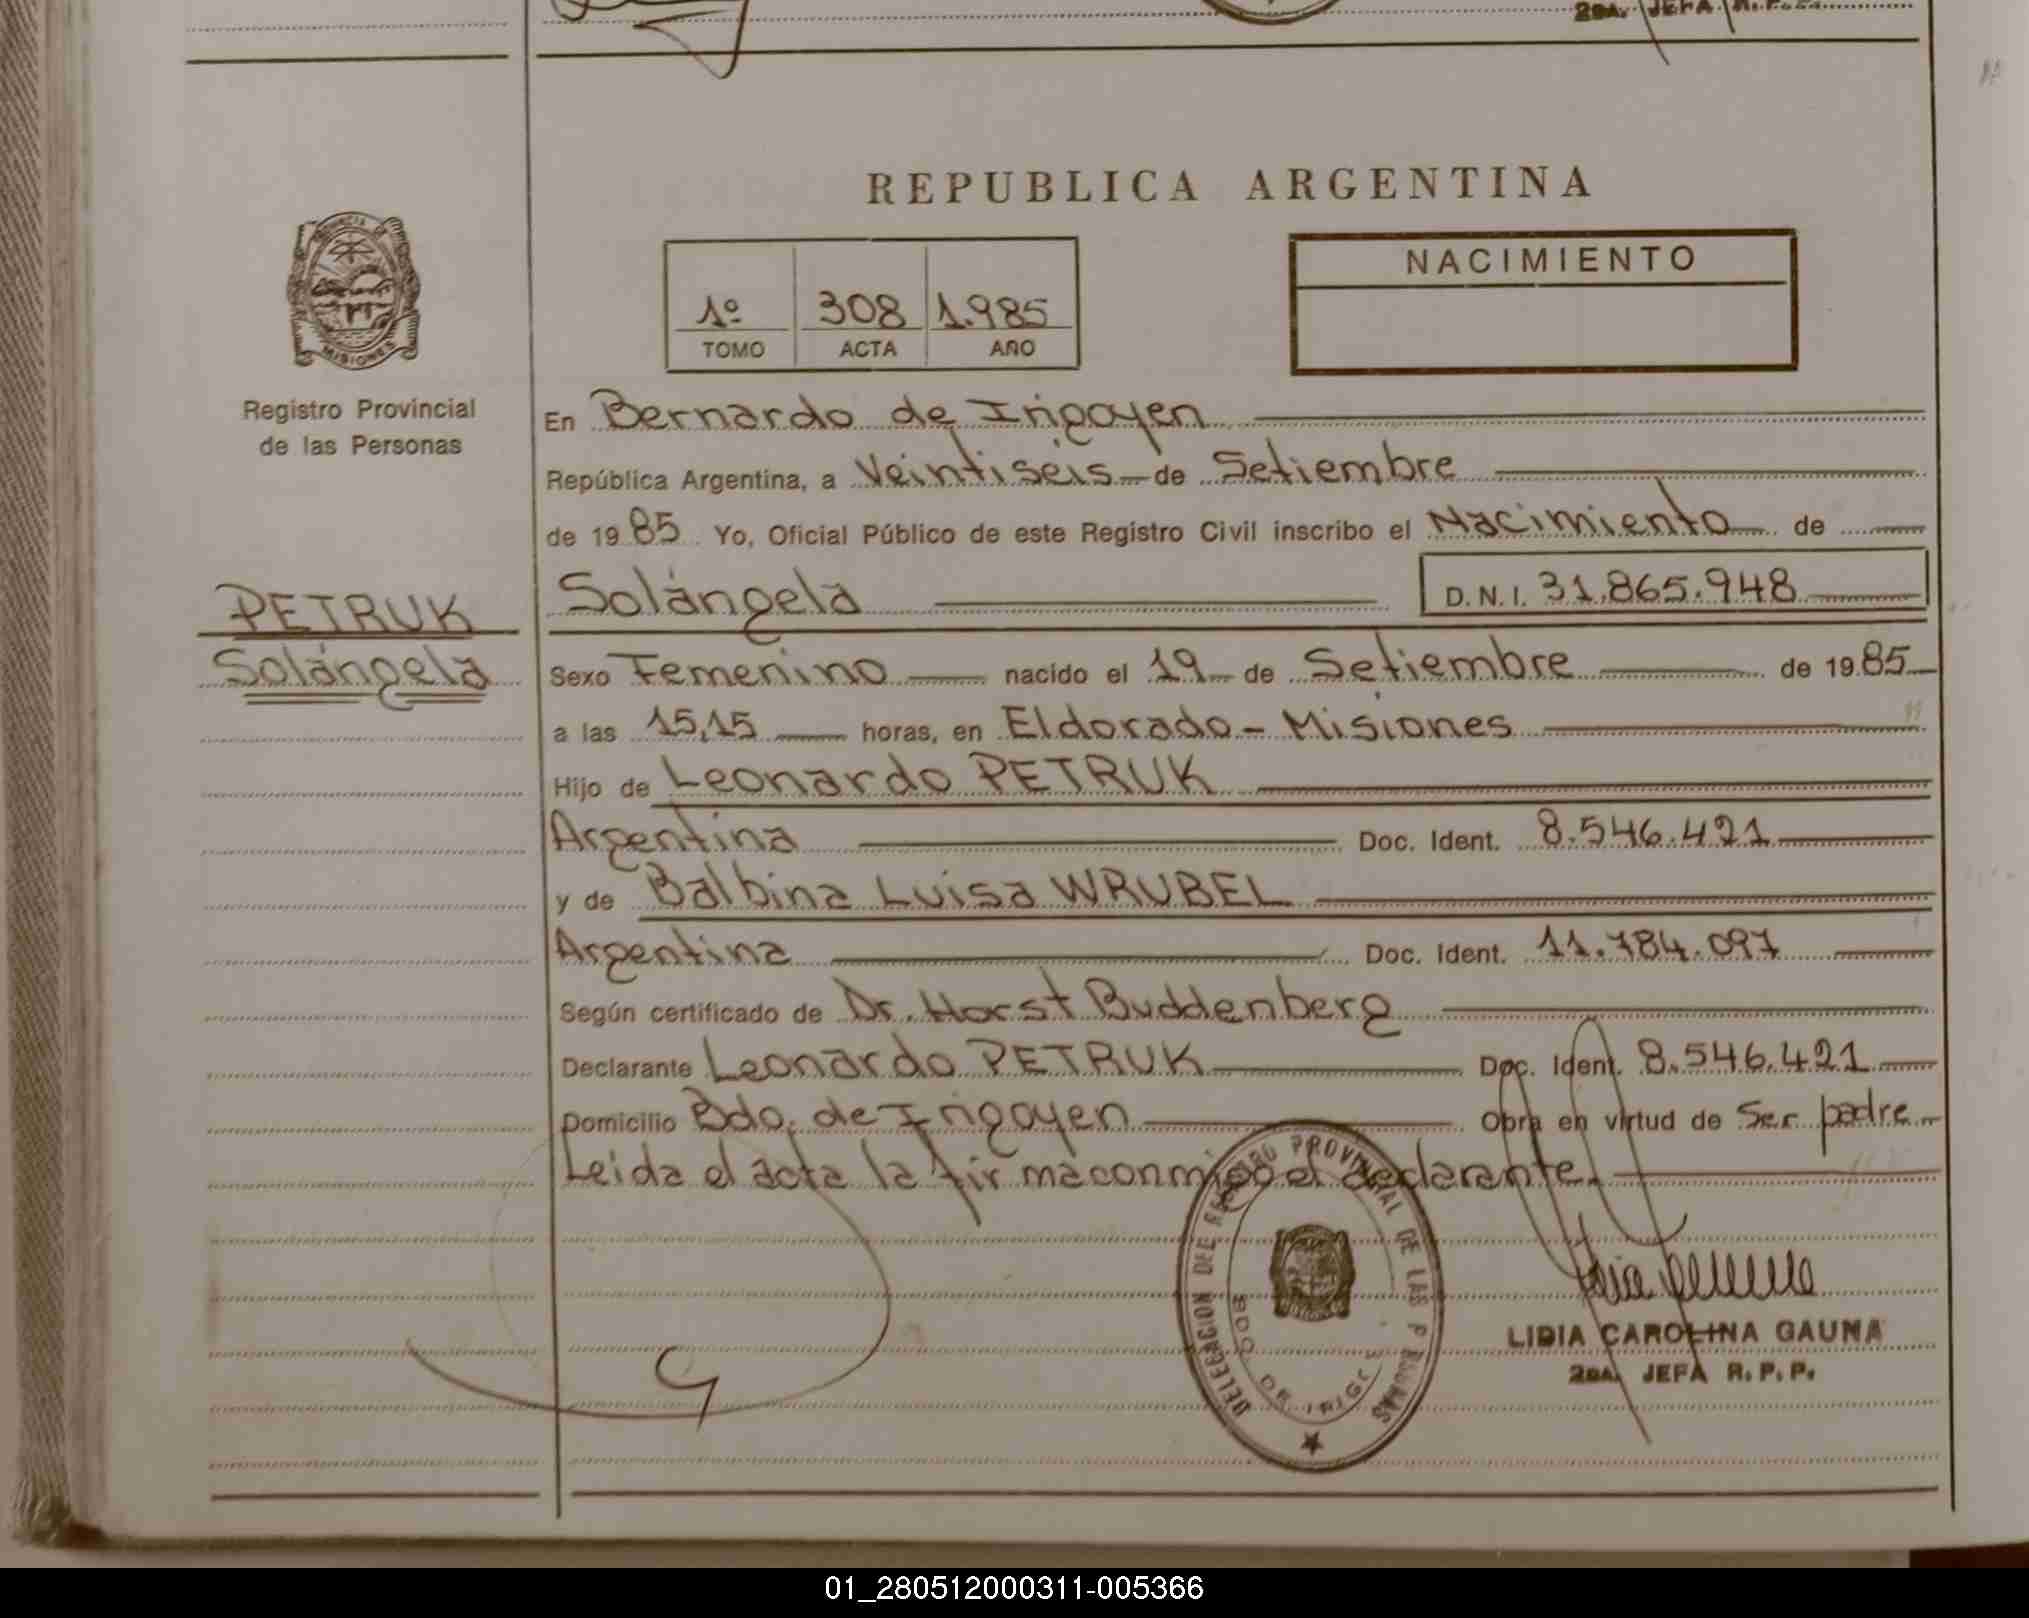 2DA. JEFA R.P.P.
REPUBLICA ARGENTINA
PROVINCIA DE
MISIONES
Registro Provincial
de las Personas
1º 308 1.985
TOMO ACTA AÑO
NACIMIENTO
En Bernardo de Irigoyen
República Argentina, a Veintiseis de Setiembre
de 1985 Yo, Oficial Público de este Registro Civil inscribo el Nacimiento de
PETRUK
Solángela
Solángela D.N.I. 31.865.948
Sexo Femenino nacido el 19 de Setiembre de 1985
a las 15,15 horas, en Eldorado - Misiones
Hijo de Leonardo PETRUK
Argentina Doc. Ident. 8.546.421
y de Balbina Luisa WRUBEL
Argentina Doc. Ident. 11.784.097
Según certificado de Dr. Horst Buddenberg
Declarante Leonardo PETRUK Doc. Ident. 8.546.421
Domicilio Bdo. de Irigoyen Obra en virtud de Ser padre
Leida el acta la firma conmigo el declarante.
DELEGACION DEL REGISTRO PROVINCIAL DE LAS PERSONAS
BDO. DE IRIG
LIDIA CAROLINA GAUNA
2DA. JEFA R.P.P.
01_280512000311-005366